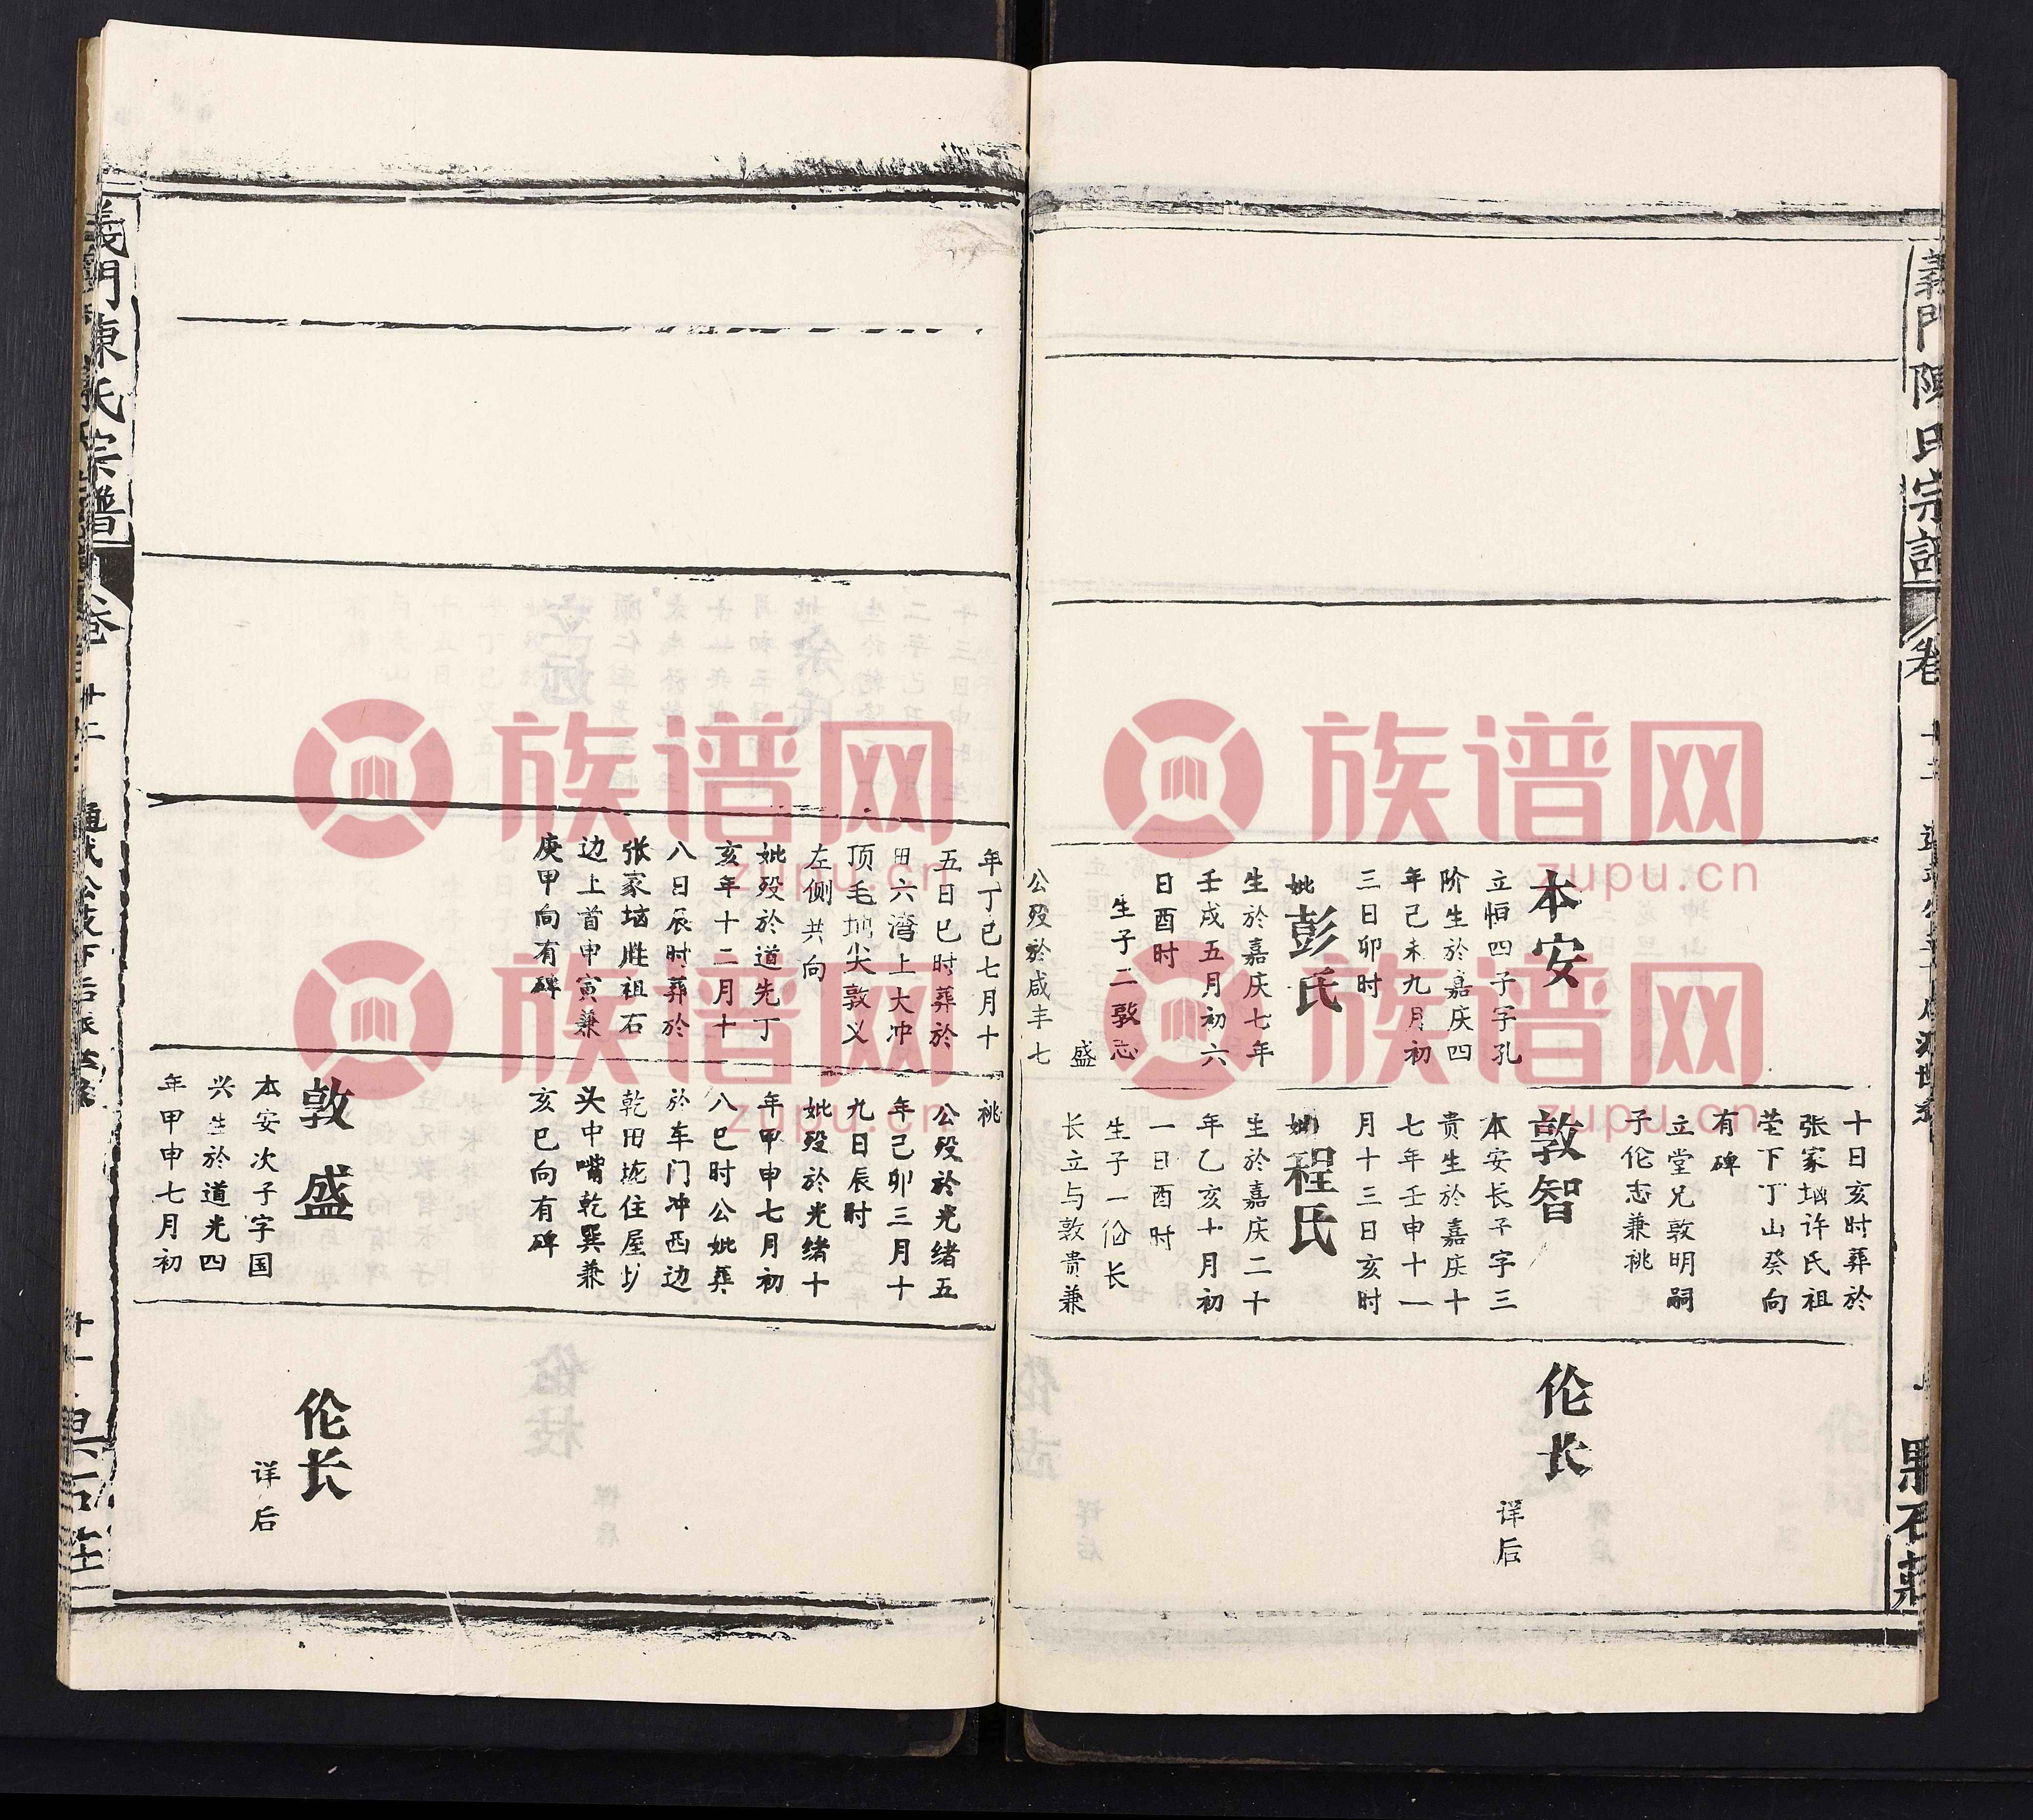 本安
立恒四子字孔
阶生於嘉庆四
年己未九月初
三日卯时
妣彭氏
生於嘉庆七年
壬戌五月初六
日酉时
生子二敦志
盛
公殁於咸丰七
十日亥时葬於
张家垴许氏祖
茔下丁山癸向
有碑
立堂兄敦明嗣
子伦志兼祧
敦智
本安长子字三
贵生於嘉庆十
七年壬申十一
月十三日亥时
妣程氏
生於嘉庆二十
年乙亥十月初
一日酉时
生子一伦长
长立与敦贵兼
伦长
详后
年丁巳七月十
五日巳时葬於
田六湾上大冲
顶毛地尖敦义
左侧共向
妣殁於道先丁
亥年十二月十
八日辰时葬於
张家垴胜祖右
边上首申寅兼
庚甲向有碑
祧
公殁於光绪五
年己卯三月十
九日辰时
妣殁於光绪十
年甲申七月初
八巳时公妣葬
於车门冲西边
乾田垅住屋圤
头中嘴乾巽兼
亥巳向有碑
敦盛
本安次子字国
兴生於道光四
年甲申七月初
伦长
详后
義門陳氏宗譜
卷
義門陳氏宗譜
卷
果石莊
族谱网
zupu.cn
族谱网
zupu.cn
族谱网
zupu.cn
族谱网
zupu.cn